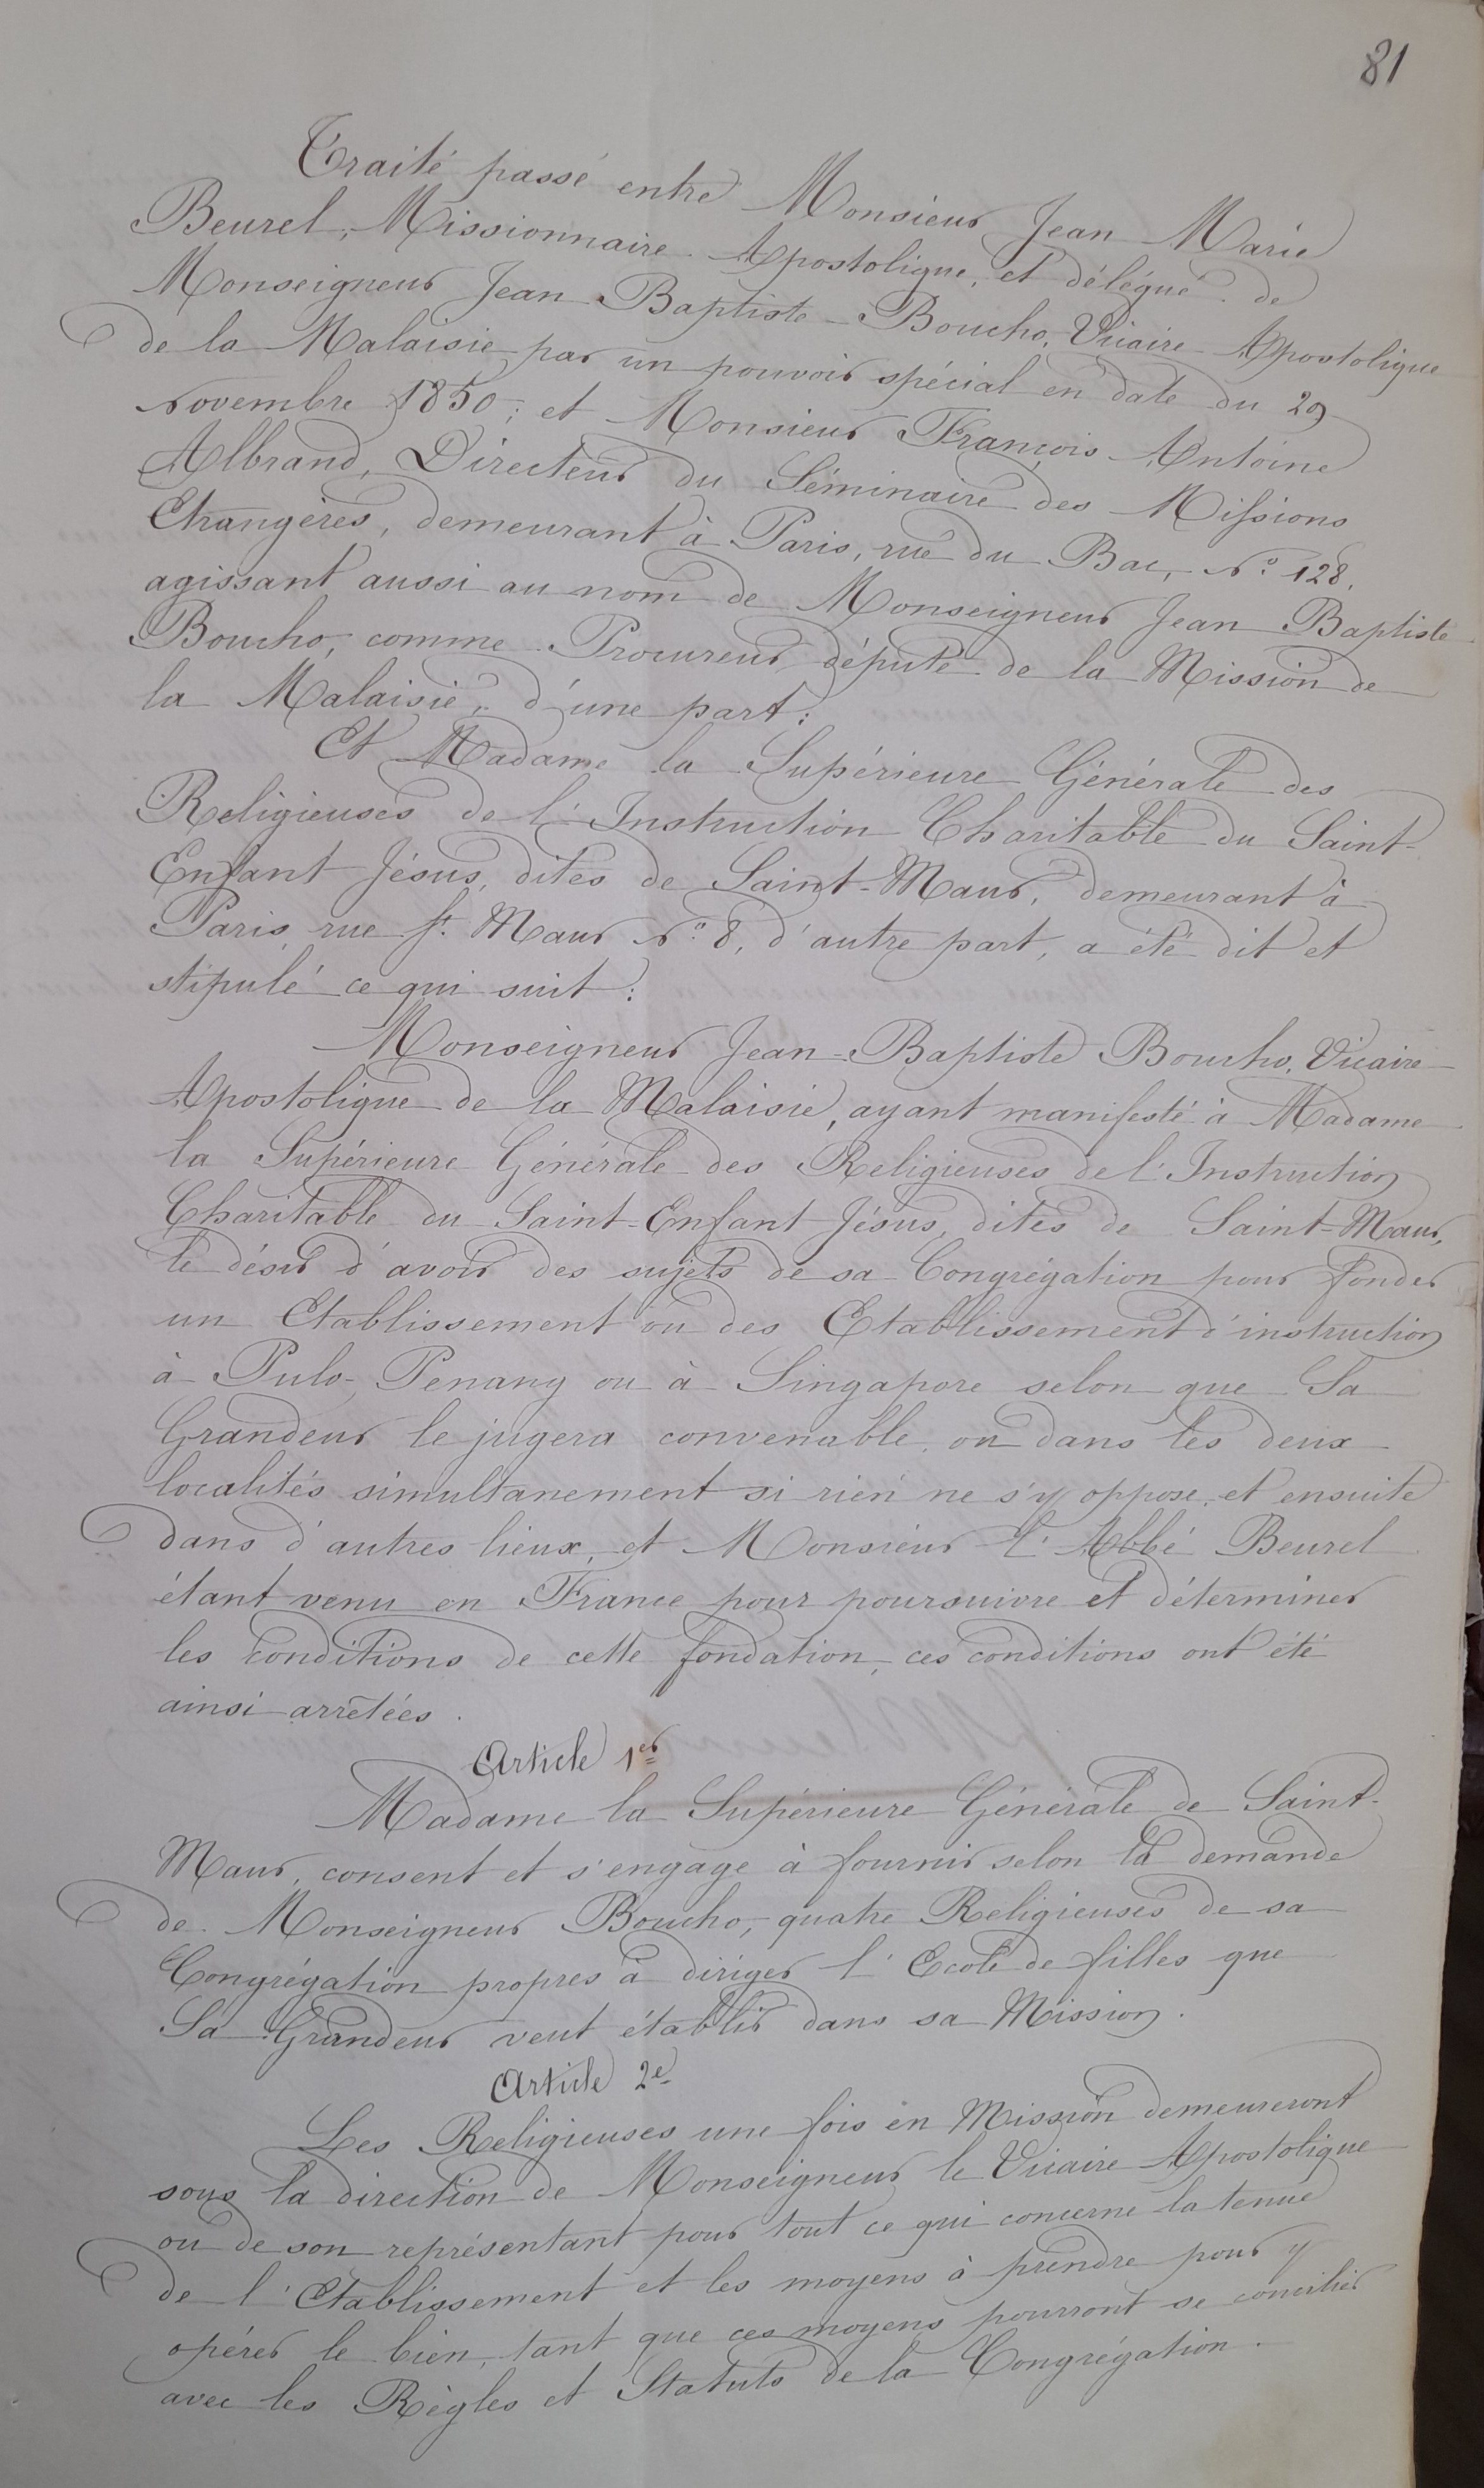 81
Traité passé entre Monsieur Jean Marie
Beurel, Missionnaire Apostolique, et délégué de
Monseigneur Jean Baptiste Boucho, Vicaire Apostolique
de la Malaisie par un pouvoir spécial en date du 29
Novembre 1850; et Monsieur François Antoine
Albrand, Directeur du Séminaire des Missions
Etrangères, demeurant à Paris, rue du Bac, No. 128,
agissant aussi au nom de Monseigneur Jean Baptiste
Boucho, comme Procureur député de la Mission de
la Malaisie, d'une part:
Et Madame la Supérieure Générale des
Religieuses de l'Instruction Charitable du Saint-
Enfant Jésus, dites de Saint-Maur, demeurant à
Paris rue St. Maur No. 8, d'autre part, a été dit et
stipulé ce qui suit:
Monseigneur Jean-Baptiste Boucho, Vicaire
Apostolique de la Malaisie, ayant manifesté à Madame
la Supérieure Générale des Religieuses de l'Instruction
Charitable du Saint-Enfant Jésus, dites de Saint-Maur,
le désir d'avoir des sujets de sa Congrégation pour fonder
un Etablissement ou des Etablissement d'instruction
à Pulo-Penang ou à Singapore selon que Sa
Grandeur le jugera convenable, ou dans les deux
localités simultanement si rien ne s'y oppose, et ensuite
dans d'autres lieux, et Monsieur l'Abbé Beurel
étant venu en France pour poursuivre et déterminer
les conditions de cette fondation, ces conditions ont été
ainsi arrêtées.
Article 1er
Madame la Supérieure Générale de Saint-
Maur, consent et s'engage à fournir selon la demande
de Monseigneur Boucho, quatre Religieuses de sa
Congrégation propres à diriger l'Ecole de filles que
Sa Grandeur veut établir dans sa Mission.
Article 2e
Les Religieuses une fois en Mission demeureront
sous la direction de Monseigneur le Vicaire Apostolique
ou de son représentant pour tout ce qui concerne la tenue
de l'Etablissement et les moyens à prendre pour y
opérer le bien, tant que ces moyens pourront se concilier
avec les Règles et Statuts de la Congrégation.